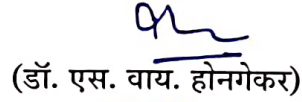 (डॉ. एस. वाय. होनगेकर)